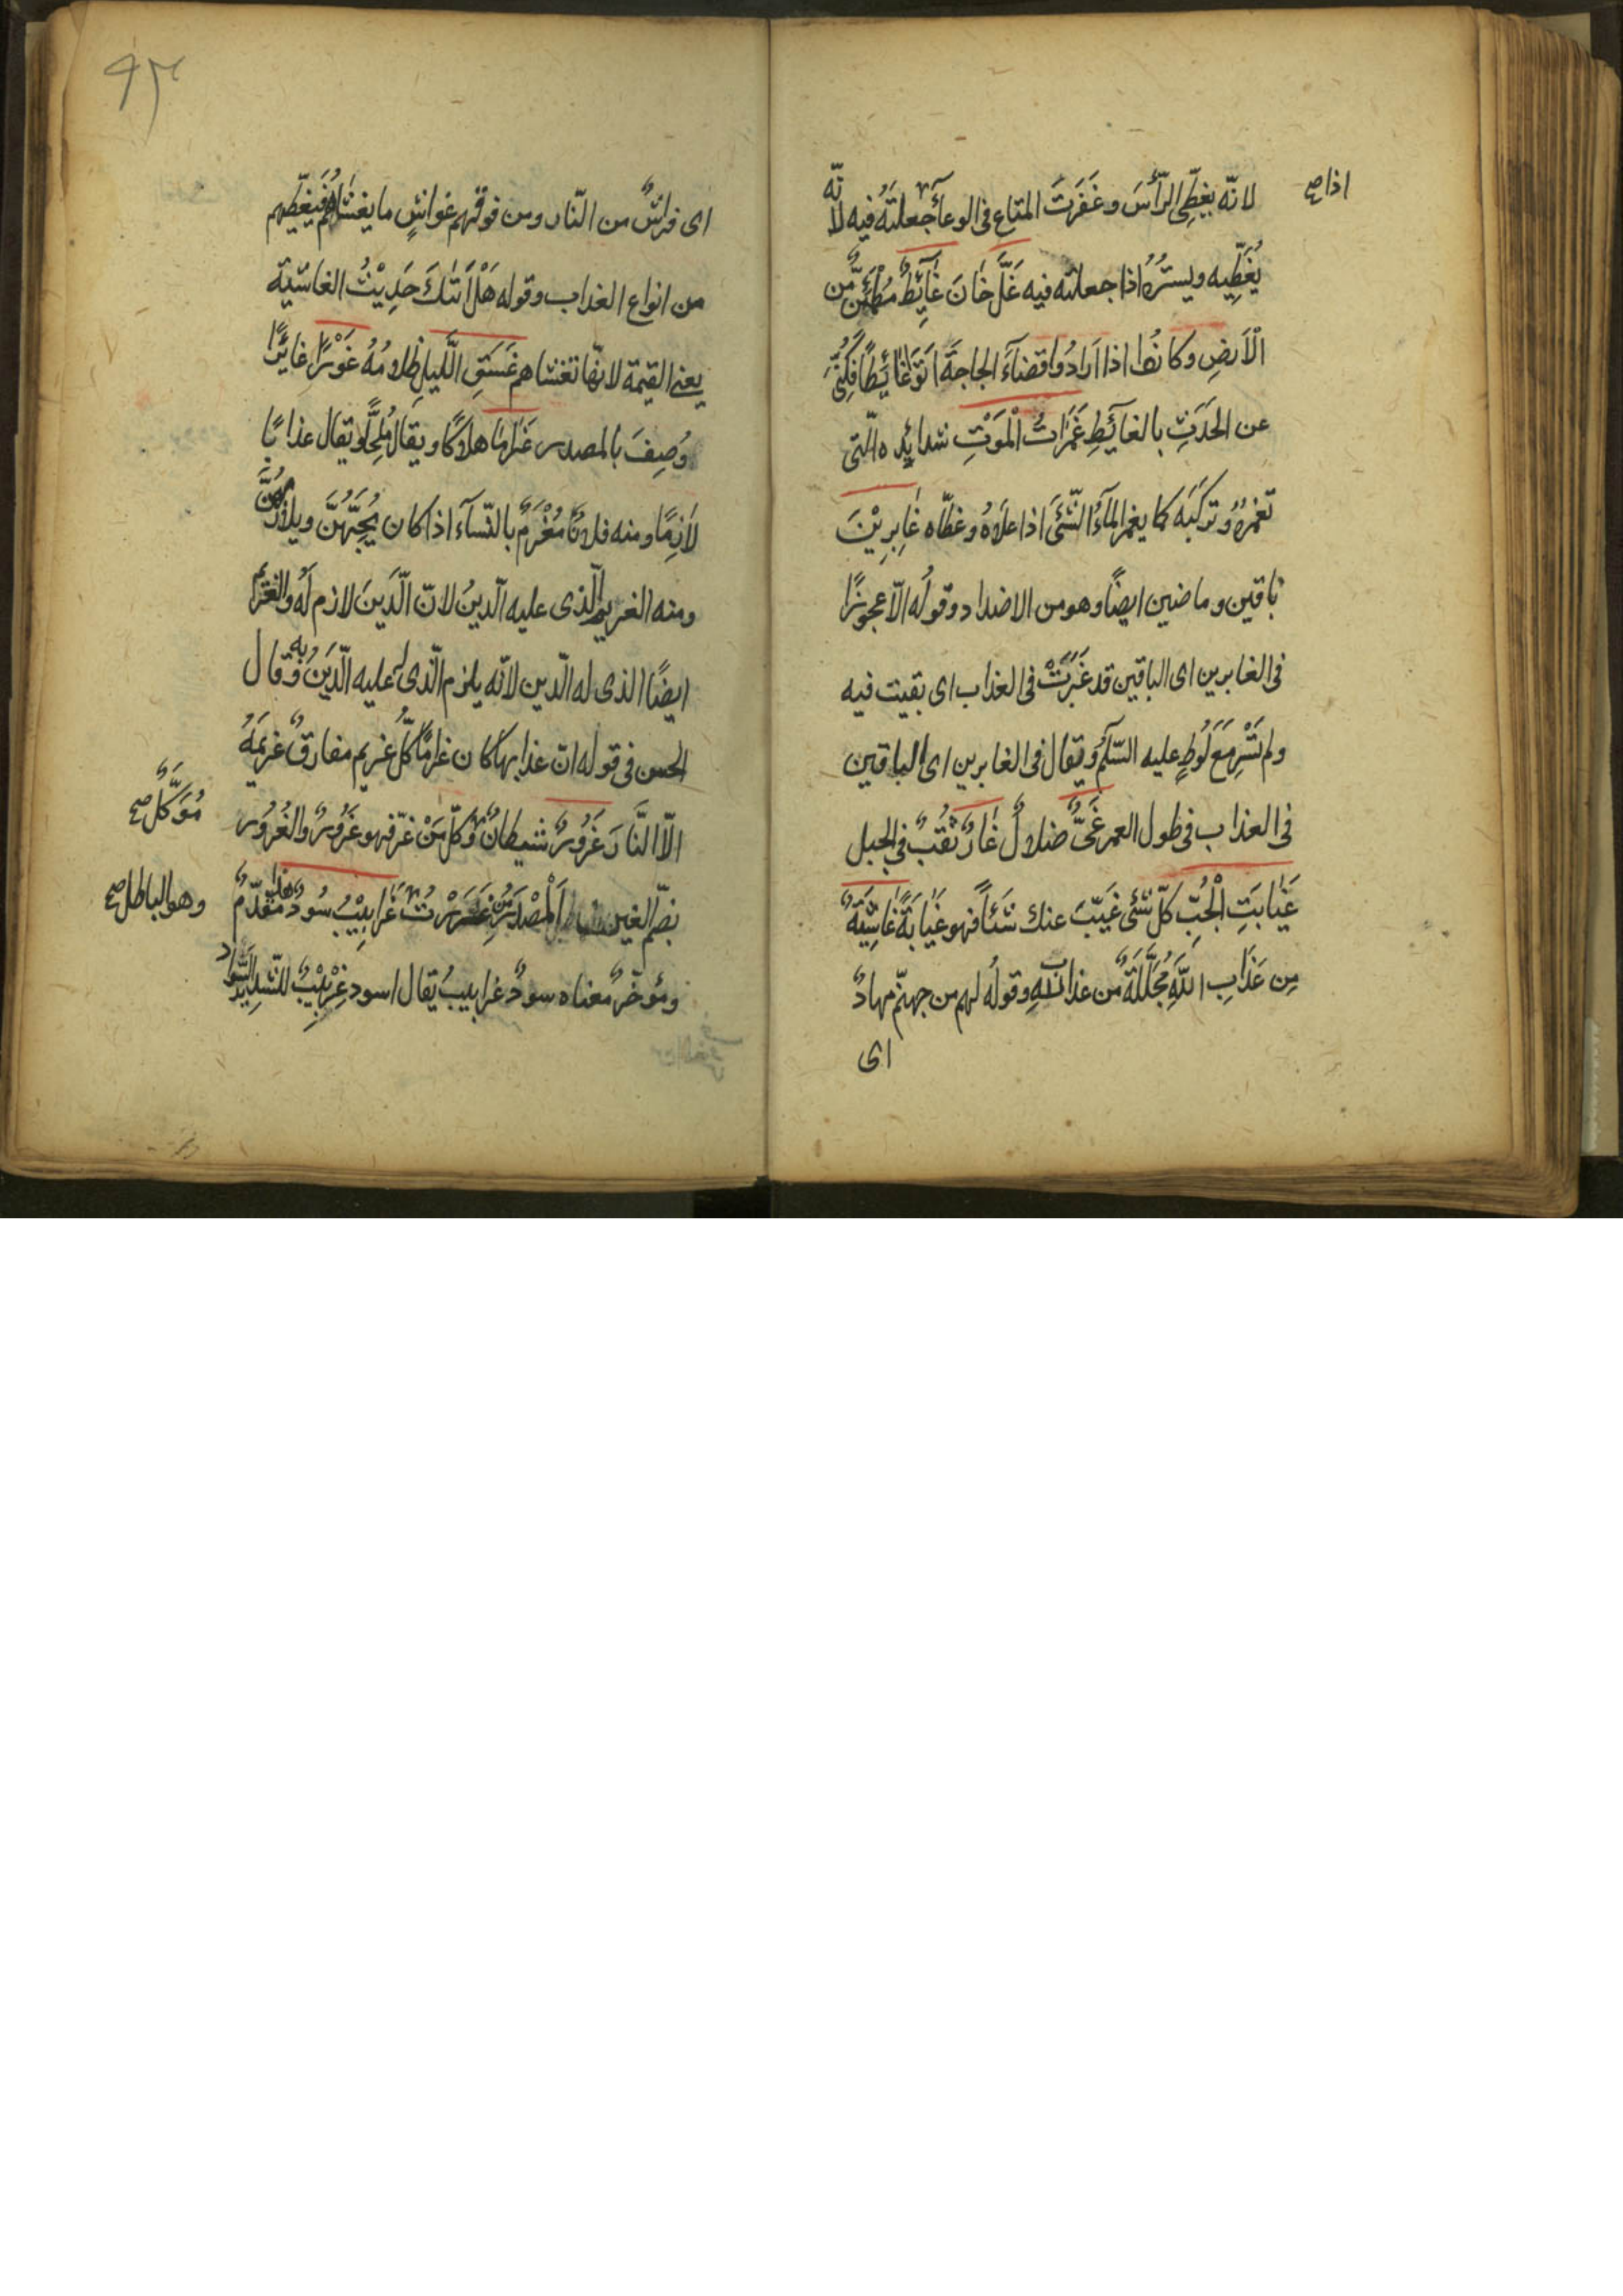 لانّه يغطّى الرّأسَ وغَفَرتَ المتاع فى الوعآءِ جعلتَهُ فيه لانّه
اذا صح
يُغَطِّيه ويسترُهُ اذا جعلته فيه غَلَّ خانَ غَآئِطٌ مُطْمَئِنٌّ من
الْاَرضِ وكانُوا اذا اَرادُوا قضآءَ الحاجةَ اَتَوْا غَائِطًا فكُنِّىَ
عن الحَدَثِ بالغآئطِ غَمَرَاتُ الْمَوْتِ شدائدِه الّتى
تَغمُرُهُ وتركَبُه كما يغمر المآءُ الشّئَ اذا علاهُ وغطّاه غَابِرِيْنَ
باقين وماضين ايضًا وهو من الاضداد وقولُه الّا عجوزًا
فى الغابرين اى الباقين قد غَبَرَتْ فى العذاب اى بقيت فيه
ولم تَسْرِ مَعَ لُوطٍ عليه السّلمُ ويقال فى الغابرين اى الباقين
فى العذاب فى طول العمر غَىٌّ ضلالٌ غَارٌ نَقْبٌ فى الجبل
غَيَابَتِ الْجُبِّ كلّ شئ غَيَّبَ عنك شَئًا فهو غَيَابَةٌ غَاشِيَةٌ
مِن عَذَابِ اللّٰهِ مُجَلِّلَةٌ من عذاب اللهِ وقولُه لهم من جهنّم مهادٌ
اى
٩٣
اى فراشٌ من النّار ومن فوقهم غواشٍ ما يغشاهُم فَيغطّيهم
من انواع العذاب وقوله هَلْ اَتٰكَ حَدِيْثُ الغاشية
يعنى القيمة لانّها تغشاهم غَسَقِ الَّليلِ ظلامُهُ غَوْرًا غائرًا
وُصِفَ بالمصدر غَرَامًا هلاكًا ويقالُ مُلِحًّا ويقال عذابًا
لازمًا ومنه فلانٌ مُغْرَمٌ بالنّسآء اذا كان يُحِبُّهُنَّ ويلازمُهُنَّ
ومنه الغريم الّذى عليه الّدينُ لانّ الّدَينَ لازم لَهُ والغريم
ايضًا الذى له الّدين لانّه يلزم الّذى عليه الّدَينُ به وقال
الحسن فى قوله انّ عذابها كان غرامًا كلُّ غريم مفارقٌ غريمَهُ
الّا النَّارَ غَرُورٌ شيطانٌ وكلّ مَنْ غرّ فهو غَرُورٌ والغُرُور
مُوَكَّلٌ صح
بضّم الغين الباطل مَصْدَرُ غَرَرْتُ غَرابِيْبُ سُودٌ هذا مقدّمٌ
وهو الباطل صح
ومؤخّرٌ معناه سودٌ غرابيبُ يُقال اسود غِرْبِيْبٌ للّشديد السّواد